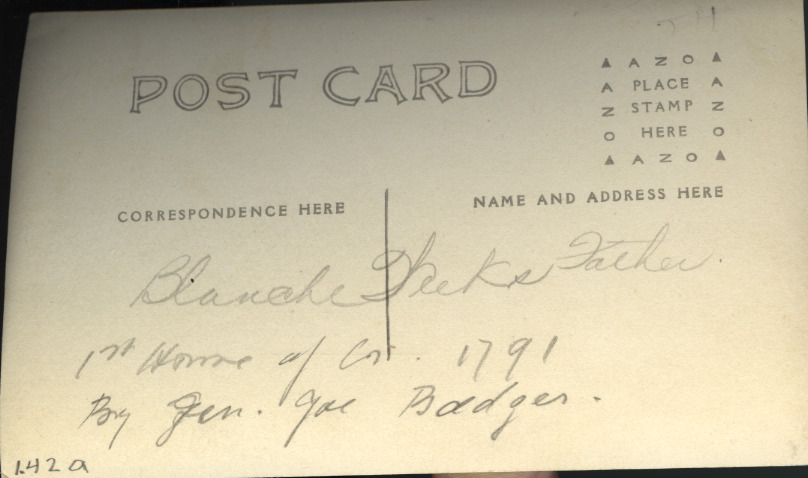 POST CARD
▲ A Z O ▲
A PLACE A
Z STAMP Z
O HERE O
▲ A Z O ▲
CORRESPONDENCE HERE
NAME AND ADDRESS HERE
Blanche Weeks Father.
1st House of Co. 1791
By Gen. Joe Badger.
1.42a